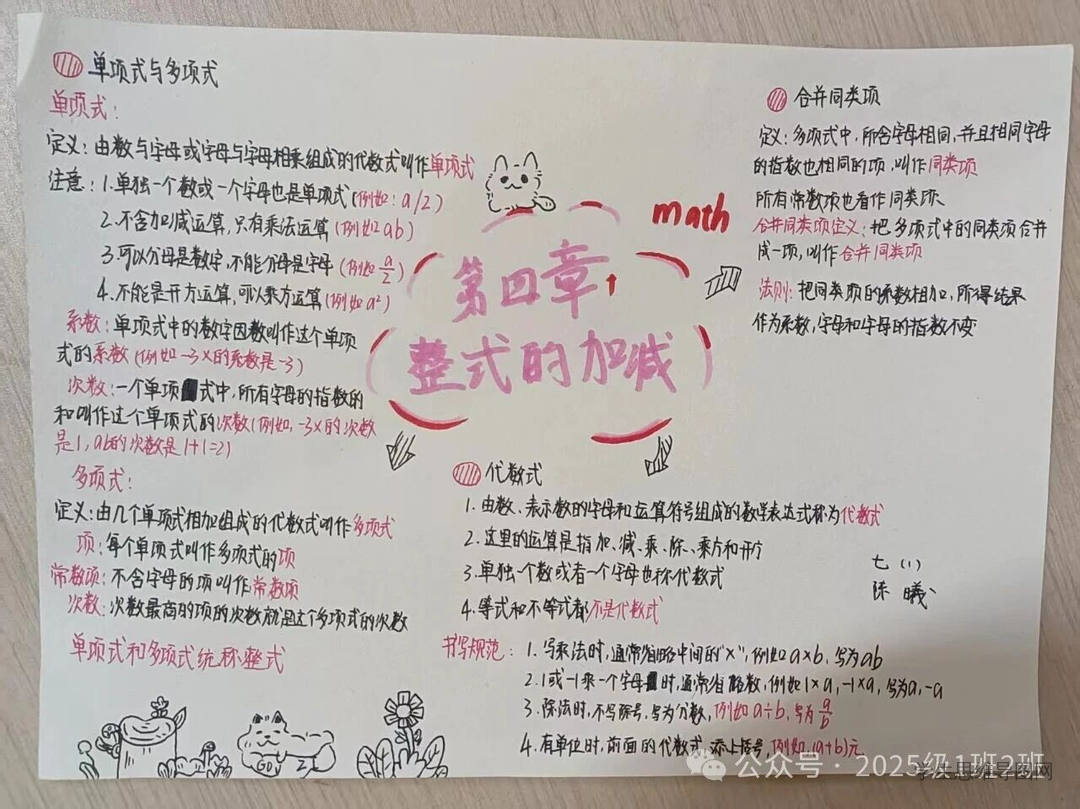 单项式与多项式
单项式：
定义：由数与字母或字母与字母相乘组成的代数式叫作单项式
注意：1.单独一个数或一个字母也是单项式(例如：a/2)
2.不含加减运算，只有乘法运算(例如ab)
3.可以分母是数字，不能分母是字母(例如a/2)
4.不能是开方运算，可以乘方运算(例如a²)
系数：单项式中的数字因数叫作这个单项
式的系数(例如-3x的系数是-3)
次数：一个单项式中，所有字母的指数的
和叫作这个单项式的次数(例如，-3x的次数
是1，ab的次数是1+1=2)
多项式：
定义：由几个单项式相加组成的代数式叫作多项式
项：每个单项式叫作多项式的项
常数项：不含字母的项叫作常数项
次数：次数最高的项的次数就是这个多项式的次数
单项式和多项式统称整式
math
第四章
整式的加减
合并同类项
定义：多项式中，所含字母相同，并且相同字母
的指数也相同的项，叫作同类项
所有常数项也看作同类项
合并同类项定义：把多项式中的同类项合并
成一项，叫作合并同类项
法则：把同类项的系数相加，所得结果
作为系数，字母和字母的指数不变
代数式
1.由数、表示数的字母和运算符号组成的数学表达式称为代数式
2.这里的运算是指加、减、乘、除、乘方和开方
3.单独一个数或者一个字母也称代数式
4.等式和不等式都不是代数式
七(1)
陈曦
书写规范：1.写乘法时，通常省略中间的"×"，例如a×b，写为ab
2.1或-1乘一个字母时，通常省略数，例如1×a，-1×a，写为a，-a
3.除法时，不写除号，写为分数，例如a÷b，写为a/b
4.有单位时，前面的代数式添上括号，例如，(a+b)元
公众号·2025级1班2班